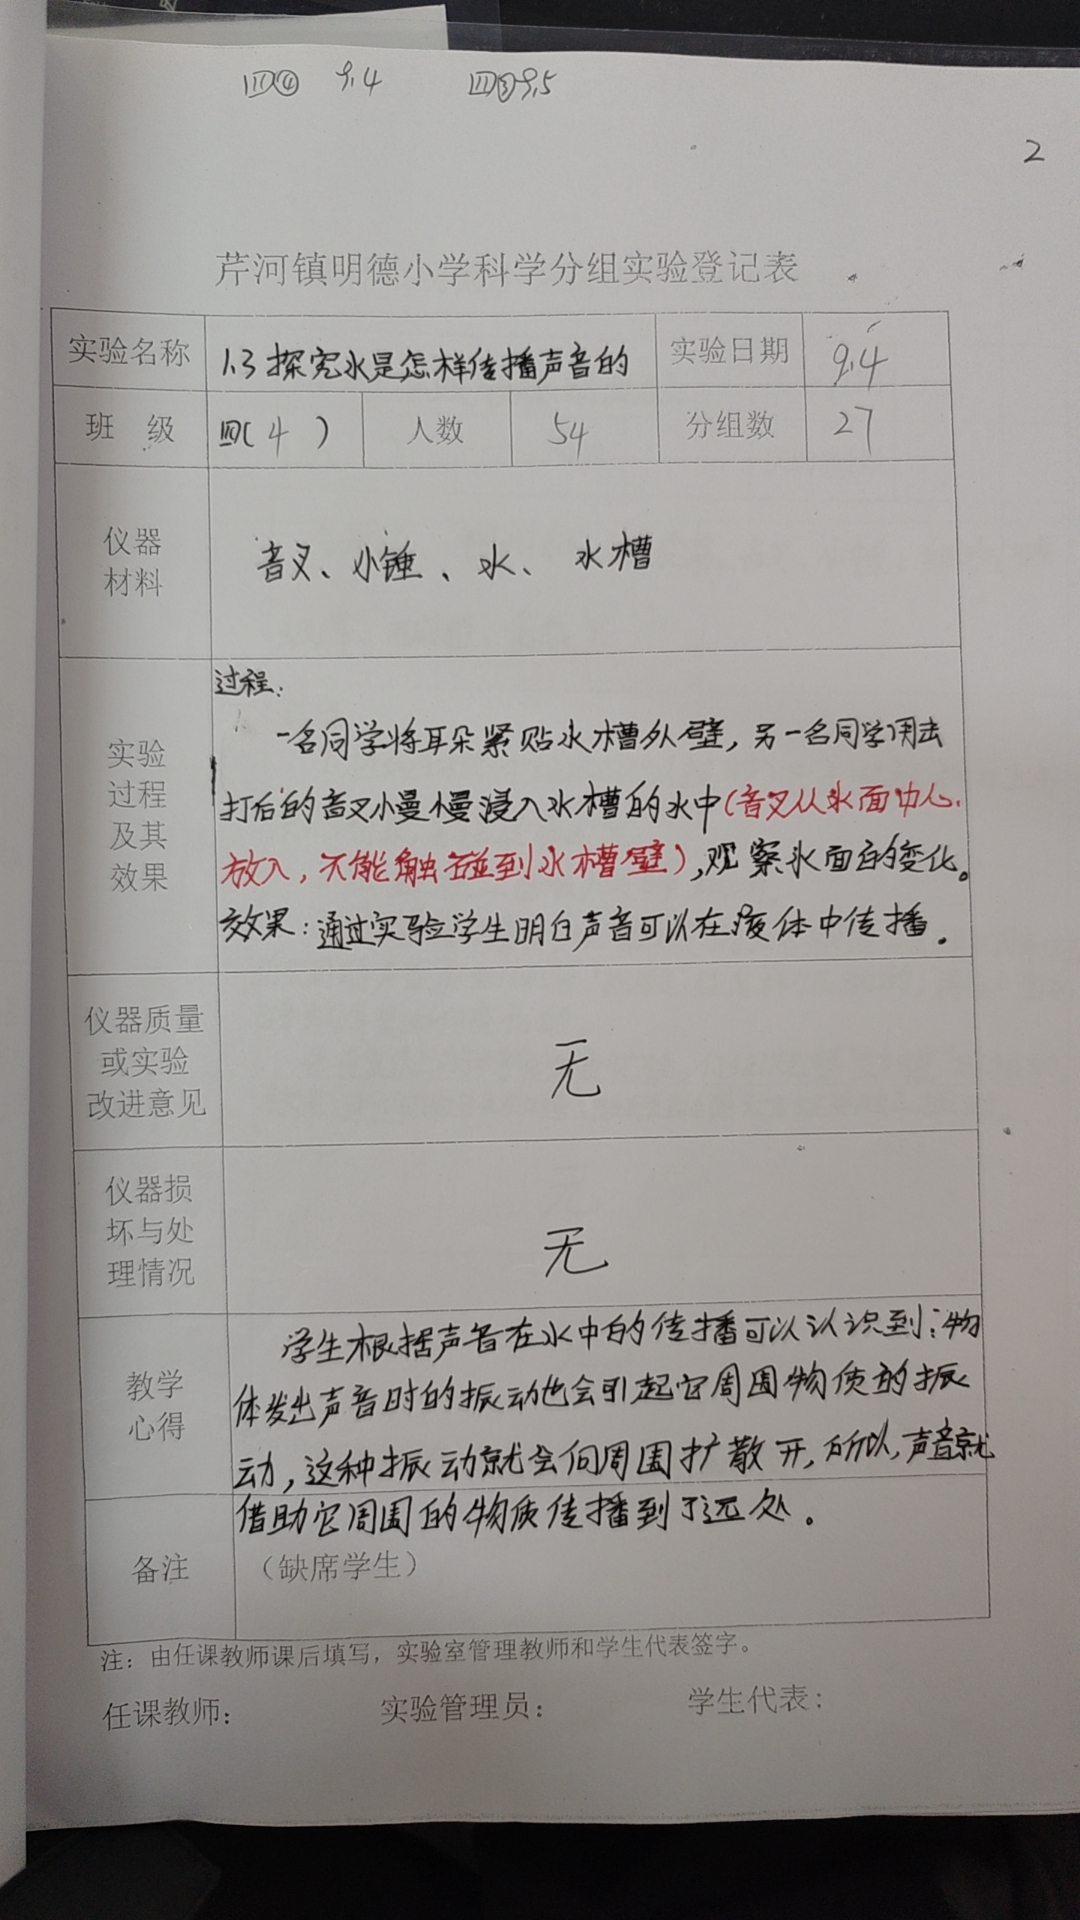 四④ 9.4 四③9.5
2
芹河镇明德小学科学分组实验登记表
实验名称 1.3探究水是怎样传播声音的 实验日期 9.4
班 级 四(4) 人数 54 分组数 27
仪器
材料
音叉、小锤、水、水槽
实验
过程
及其
效果
过程:
一名同学将耳朵紧贴水槽外壁,另一名同学用击
打后的音叉小曼慢浸入水槽的水中(音叉从水面中心
放入,不能触碰到水槽壁),观察水面的变化。
效果:通过实验学生明白声音可以在液体中传播。
仪器质量
或实验
改进意见
无
仪器损
坏与处
理情况
无
教学
心得
学生根据声音在水中的传播可以认识到:物
体发出声音时的振动也会引起它周围物质的振
动,这种振动就会向周围扩散开,所以,声音就
借助它周围的物质传播到了远处。
备注 (缺席学生)
注:由任课教师课后填写,实验室管理教师和学生代表签字。
任课教师: 实验管理员: 学生代表: